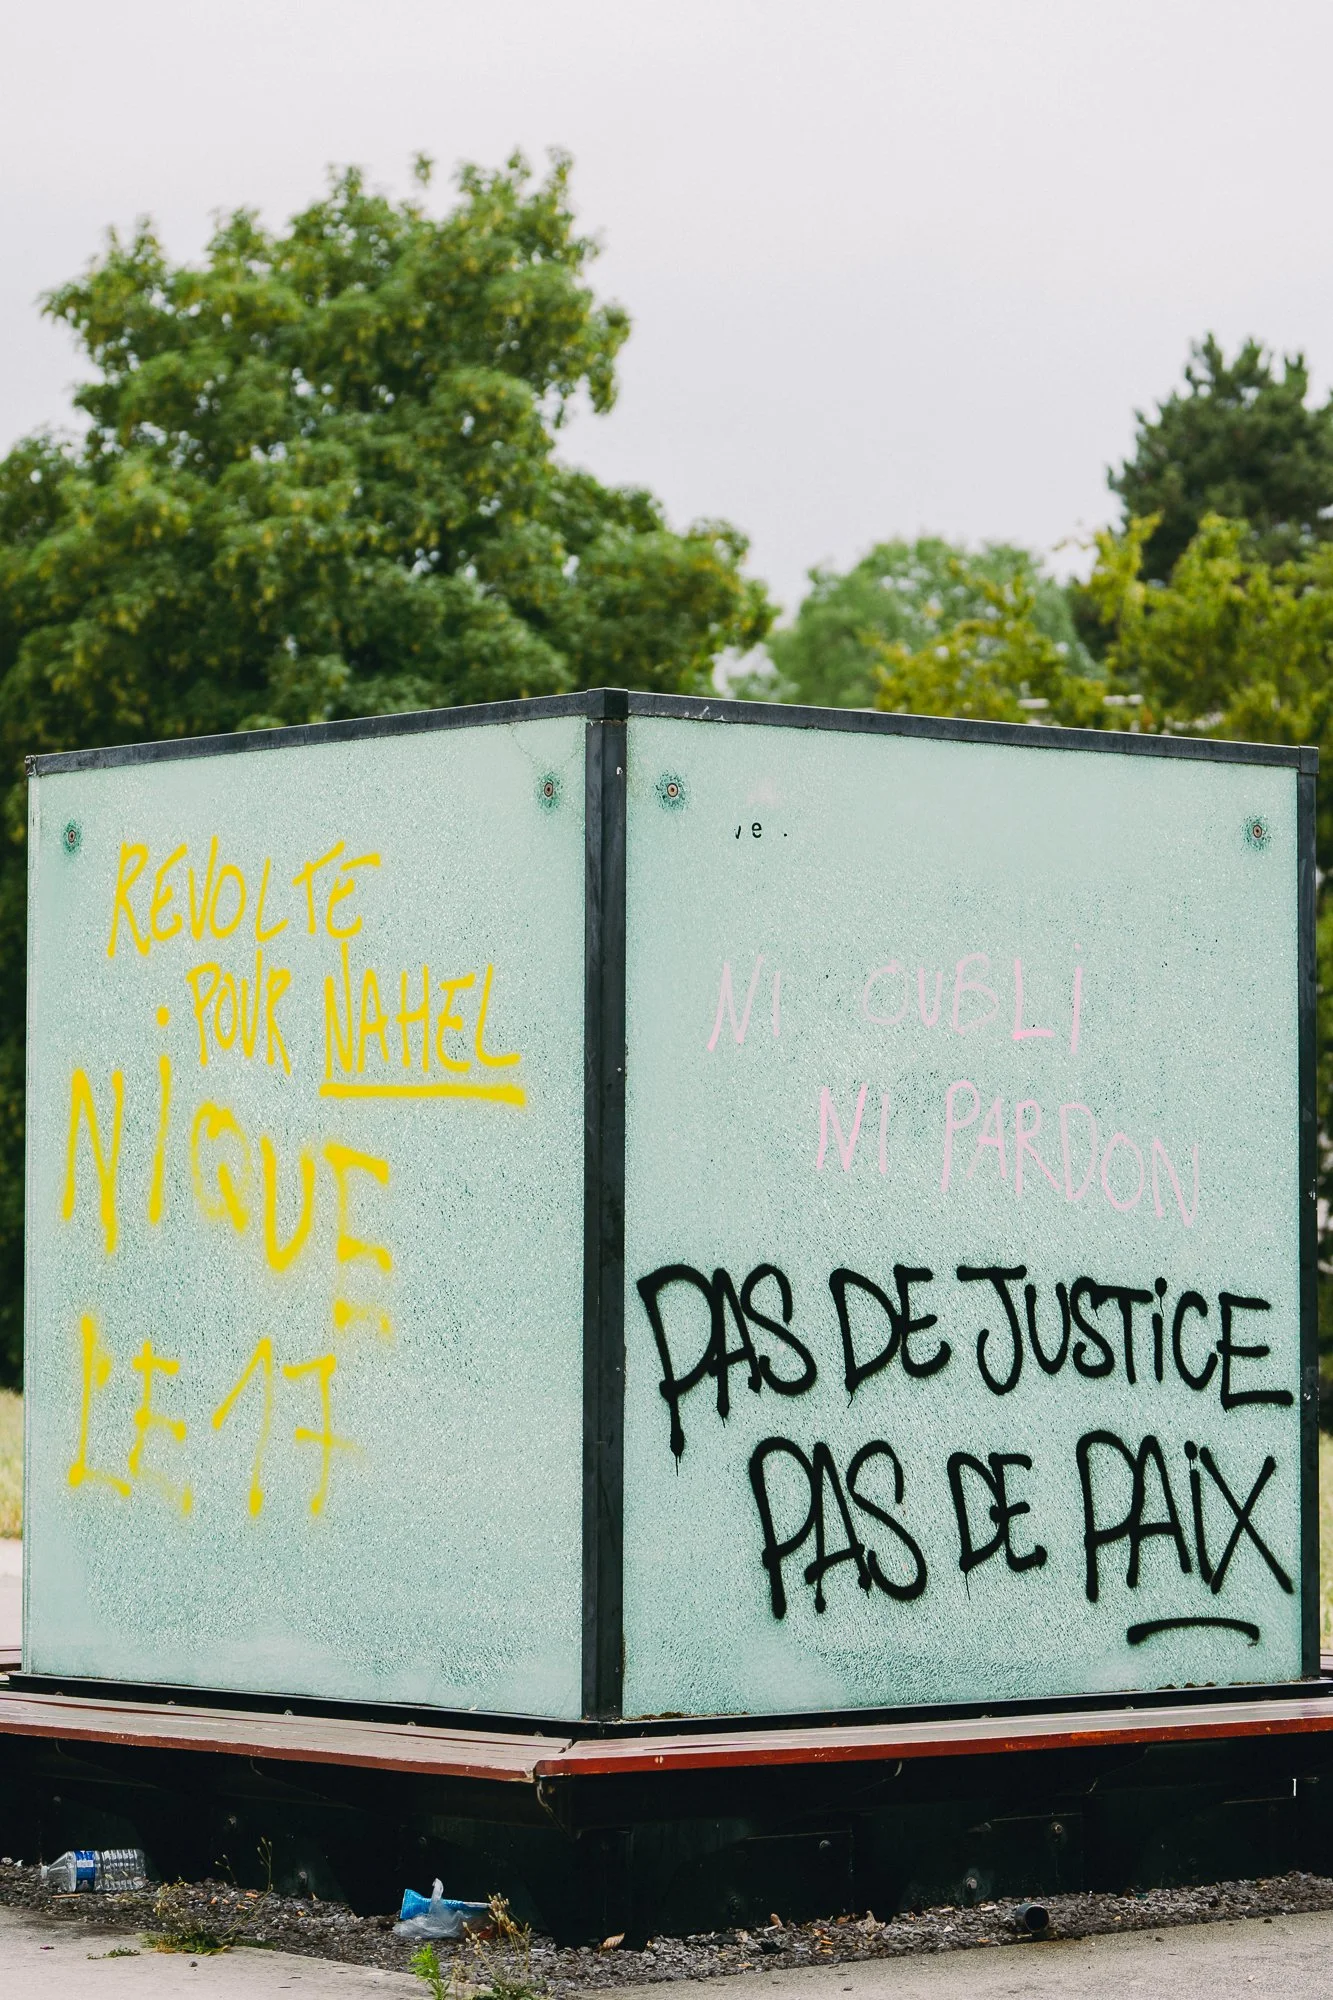 REVOLTE
POUR NAHEL
NiQUE
LE 17
ve.
Ni OUBLi
Ni PARDON
PAS DE JUSTiCE
PAS DE PAiX